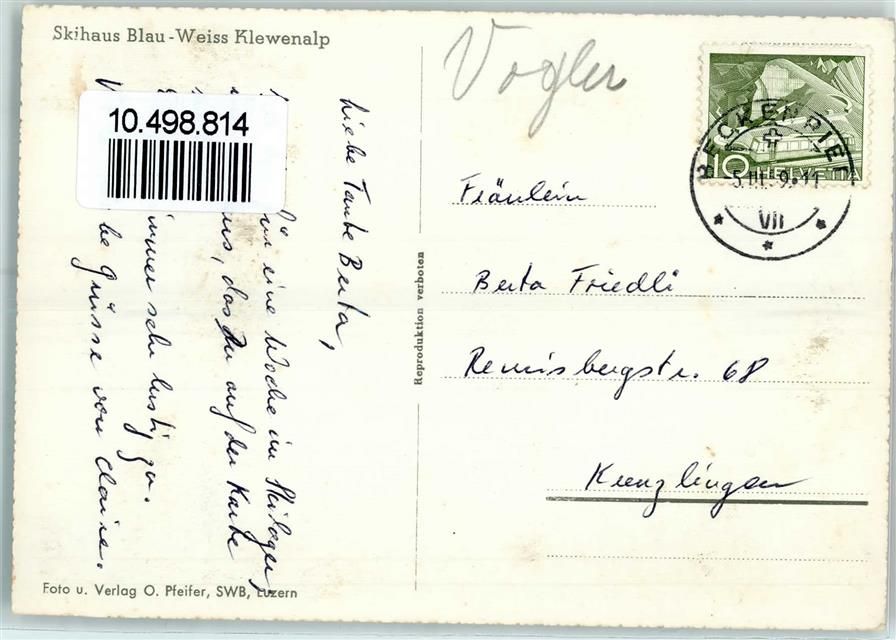 Skihaus Blau-Weiss Klewenalp
Vogler
10.498.814
10 HELVETIA
BECKENRIED
5.III. 9-11
VII
Liebe Tante Berta,
für eine Woche im Skilager,
das Du auf der Karte
immer sehr lustig zu.
Grüsse von Claire.
Fräulein
Berta Friedli
Remisbergstr. 68
Kreuzlingen
Reproduktion verboten
Foto u. Verlag O. Pfeifer, SWB, Luzern